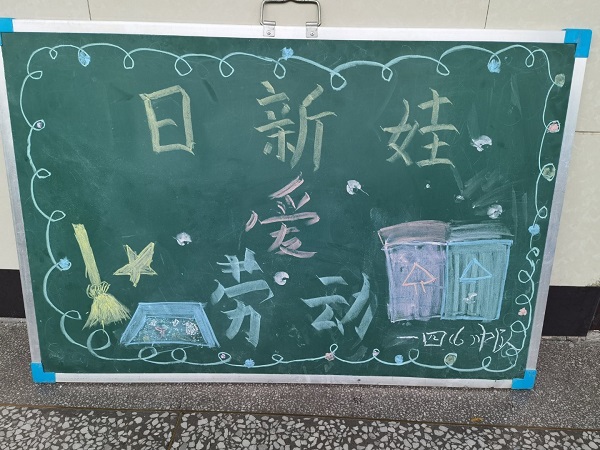 日新娃
爱
劳动
一四（6）中队